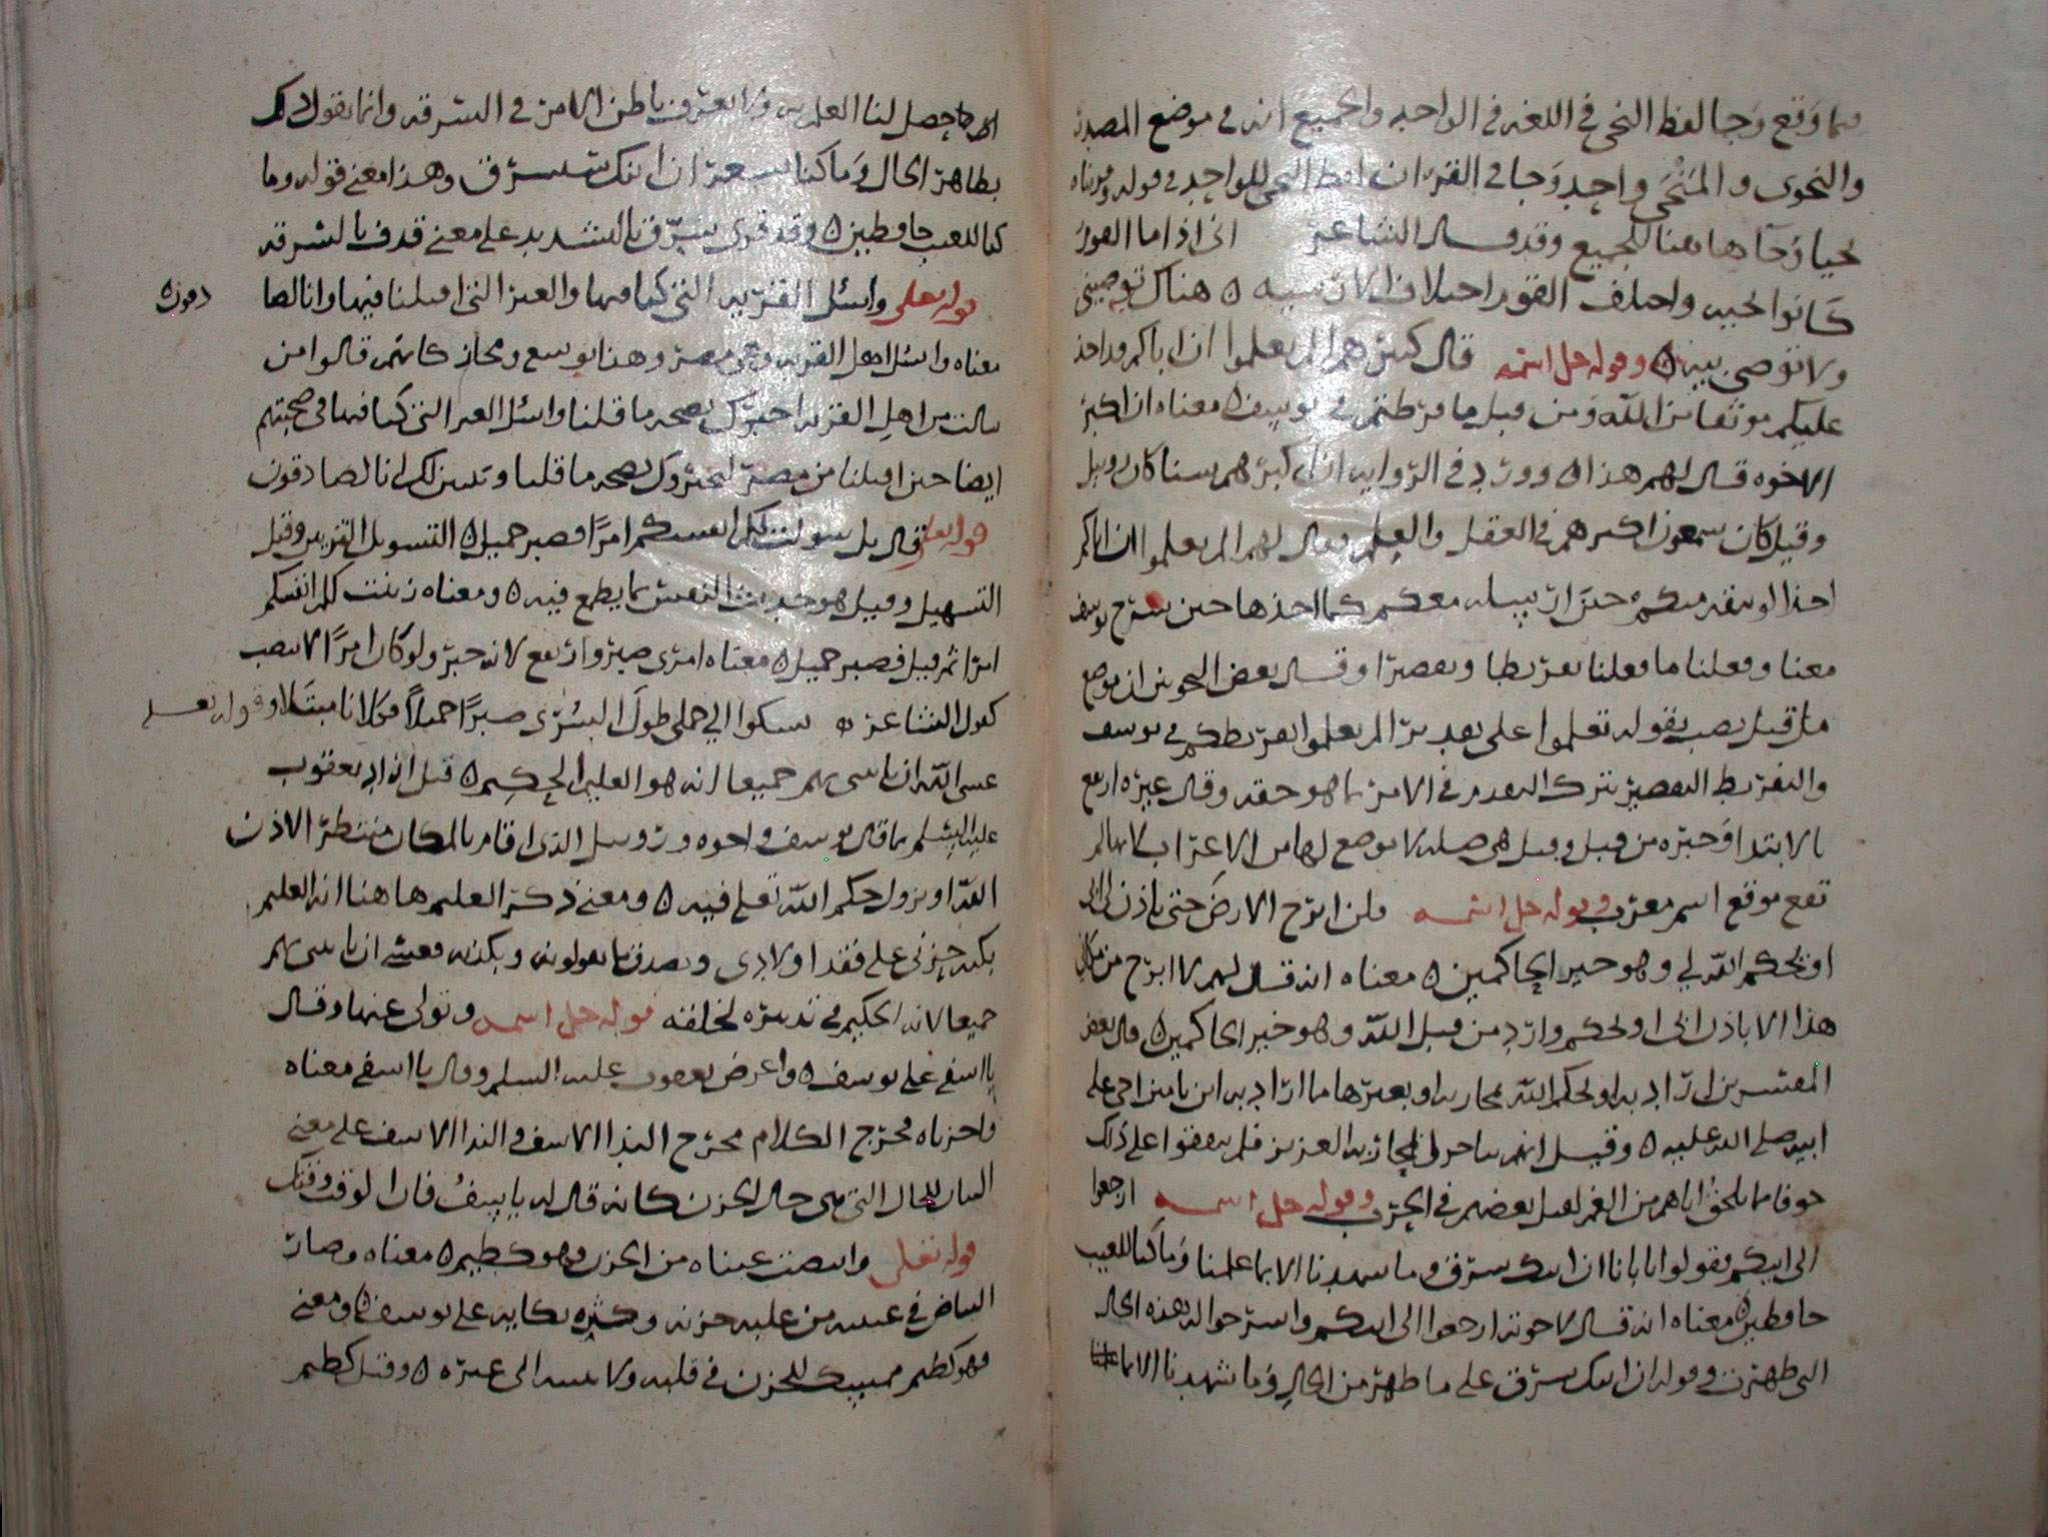 فما وقع وجا لفظ النجي في اللغة في الواحد والجميع انه في موضع المصدر
والنجوى والمنجى واحد وجا في القران لفظ النجي للواحد في قوله وقربناه
نجيا وجا هاهنا للجميع وقد قال الشاعر اني اذا ما القوم
كانوا انجيه واختلف القوم اختلاف الارشيه ه هناك توصيني
ولا توصي بيه ه وقوله جل اسمه قال كبيرهم الم يعلموا ان اباكم قد اخذ
عليكم موثقا من الله ومن قبل ما فرطتم في يوسف ه معناه ان اكبر
الاخوه قال لهم هذا ه وورد في الروايه ان اكبرهم سنا كان روبيل
وقيل كان سمعون اكبرهم في العقل والعلم وقال لهم الم يعلموا ان اباكم
اخذ الوثيقه منكم حين ارسله معكم كما اخذها حين سرح يوسف
معنا وفعلنا ما فعلنا تفريطا وتقصيرا وقال بعض النحويين ان موضع
ما من قبل نصب بقوله تعلموا على تقدير الم يعلموا تفريطكم في يوسف
والتفريط التقصير بترك التقدم في الامر بما هو حقه وقال غيره ارتفع
بالابتدا وخبره من قبل وقيل هي صله لا موضع لها من الاعراب لانها لم
تقع موقع اسم معرب وقوله جل اسمه فلن ابرح الارض حتى ياذن لي ابي
او يحكم الله لي وهو خير الحاكمين ه معناه انه قال لهم لا ابرح من مكاني
هذا الا باذن ابي او لحكم وارد من قبل الله وهو خير الحاكمين ه قال بعض
المفسرين اراد به او يحكم الله بمحاربه او بغيرها مما اراد به ابن يامين اخي على
ابيه صلى الله عليه ه وقيل انهم ساحرا في محاربه العزيز فلم يتفقوا على ذلك
خوفا مما يلحق اباهم من الغم لقتل بعضهم في الحرب وقوله جل اسمه ارجعوا
الى ابيكم فقولوا يا ابانا ان ابنك سرق وما شهدنا الا بما علمنا وما كنا للغيب
حافظين ه معناه انه قال لاخوته ارجعوا الى ابيكم واشرحوا له هذه الحال
التي ظهرت وقوله ان ابنك سرق على ما ظهر من الحال وما شهدنا الا بما علمنا
حصل لنا العلم به ولا نعرف باطن الامر في السرقه وانما نقول ذلك
بظاهر الحال وما كنا نشعر ان ابنك يسرق وهذا معنى قوله وما
كنا للغيب حافظين ه وقد قرئ سرق بالتشديد على معنى قدف بالسرقه
قوله تعلى واسئل القريه التي كنا فيها والعير التي اقبلنا فيها وانا لصا دقون ه
معناه واسئل اهل القريه وهي مصر وهذا توسع ومجاز كانهم قالوا من
سالت من اهل القريه اخبرك بصحه ما قلنا واسئل العير التي كنا فيها في صحبتهم
ايضا حين اقبلنا من مصر ليخبروك بصحه ما قلنا وتبين لك انا لصادقون
قوله تعلى قال بل سولت لكم انفسكم امرا فصبر جميل ه التسويل التزيين وقيل
التسهيل وقيل هو حديث النفس بما يطمع فيه ه ومعناه زينت لكم انفسكم
امرا ثم قيل فصبر جميل ه معناه امري صبر وارتفع لانه خبر ولو كان امرا لانتصب
كقول الشاعر ه يشكوا الي جملي طول السرى صبرا جميلا فكلانا مبتلا وقوله تعلى
عسى الله ان ياتيني بهم جميعا انه هو العليم الحكيم ه قيل انه اراد يعقوب
عليه السلم بما قال يوسف واخوه وروبيل الذي اقام بالمكان منتظر الاذن
اونزول حكم الله تعلى فيه ه ومعنى ذكر العليم هاهنا انه العليم
حزني على فقد اولادي وبصدق ما يقولونه وبكذبه فعسى ان ياتيني بهم
جميعا لانه الحكيم في تدبيره لخلقه قوله جل اسمه وتولى عنهم وقال
يا اسفى على يوسف ه واعرض يعقوب عليه السلم وقال يا اسفى معناه
واحزناه مخرج الكلام مخرج الندا للاسف والندا للاسف على معنى
البيان للحال التي هي حال الحزن كانه قال له يا اسف فان الوقت وقتك
قوله تعلى وابيضت عيناه من الحزن فهو كظيم ه معناه وصار
البياض في عينيه من غلبه حزنه وكثره بكايه على يوسف ه ومعنى
فهو كظيم ممسك للحزن في قلبه ولا يبثه الى غيره ه وقيل كظيم